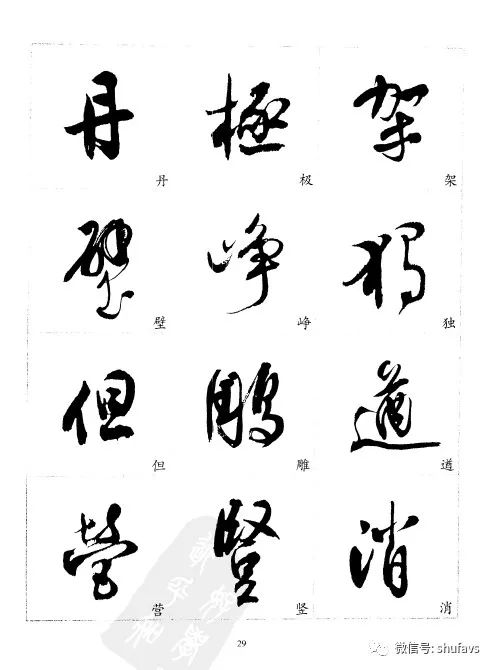 丹 極 架
丹 极 架
壁 崢 獨
壁 峥 独
但 鵰 道
但 雕 道
營 豎 消
营 竖 消
29
微信号: shufavs